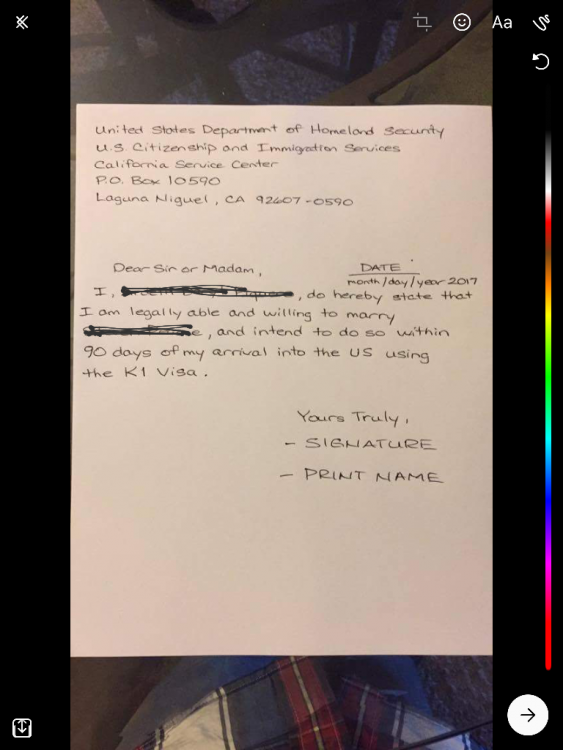 Aa
United States Department of Homeland Security
U.S Citizenship and Immigration Services
California Service Center
P.O. Box 10590
Laguna Niguel, CA 92607-0590
Dear Sir or Madam,
DATE
month/day/year 2017
I, , do hereby state that
I am legally able and willing to marry
e, and intend to do so within
90 days of my arrival into the US using
the K1 Visa.
Yours Truly,
- SIGNATURE
- PRINT NAME